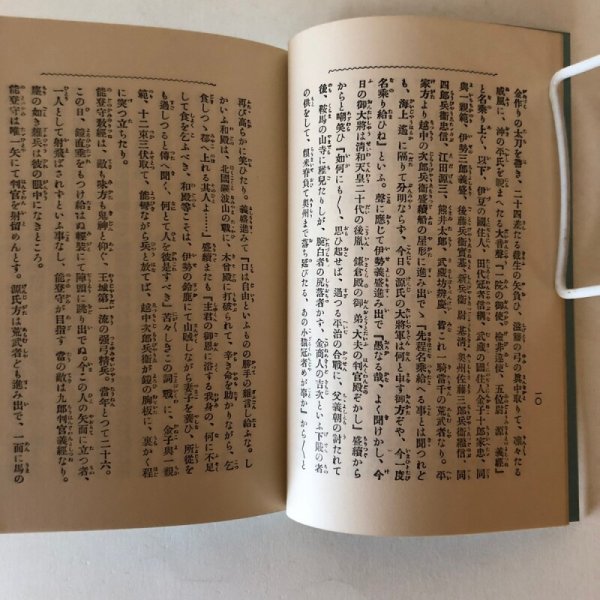 一〇
金作りの太刀を帯き、二十四差たる截生の矢負ひ、滋籐の弓の眞中取りて、凛々たる
威風に、沖の平氏を睨まへたる大音聲『一院の御使、檢非違使、五位尉 源 義經』
と名乘り上ぐ。以下、伊豆の國住人、田代冠者信綱、武藏の國住人金子十郎家忠、同
與一親範、伊勢三郎義盛、後藤兵衞實基、新兵衞尉 基清、奥州佐藤三郎兵衞繼信、同
四郎兵衞忠信、江田源三、熊井太郎、武藏坊辨慶、皆これ一騎當千の荒武者なり。平
家方より越中の次郎兵衞盛續船の屋形に進み出で『先程名乘給へる事とは聞つれど
も、海上遙に隔りて分明ならず、今日の源氏の大將軍は何と申す御方ぞや、今一度
名乘り給ひね』といふ。聲に應じて伊勢義盛進み出で『愚なる哉、よく聞けかし、今
日の御大將は清和天皇二十代の後胤、鎌倉殿の御弟、大夫の判官殿ぞかし』盛續から
からと嘲笑ひ『如何にも〱、思ひ起せば、過つる平治の合戰に、父義朝の討たれて
後、鞍馬の山寺に稚兒たりしが、腕白者の尻落者かす、金商人の吉次といふ下賤の者
の供をして、糧米脊負て奥州まで落ち延びたる、あの小猿冠者めが事か』から〱と
再び高らかに笑ひたり。義盛進みて『口は自由といふもの勝手の雜言し給ふな。し
かいふ和殿原は、北國礪波山の戰に、木曾殿に打破られて、辛き命を助かりながら、乞
食しつゝ都へ上れる其人よ……』盛續またも『主君の御恩に浴する我身の、何に不足
して食をこふべき、和殿輩こそは、伊勢の鈴鹿にて山賊しながら妻子を養ひ、所從を
も過しつると傳へ聞く、何とて人を彼是すべき』苦々しきこの詞戰に、金子與一親
範、十二束三伏取て、能彎ながら兵と放てば、越中次郎兵衞が鎧の胸板に、裏かく程
に突つ立ちたり。
能登守教經は、敵も味方も鬼神と仰ぐ、王城第一流の强弓精兵。當年とつて二十六。
この日、鎧直垂をもつけ給はぬ輕裝にて陣頭に跳り出でぬ。今この人の矢面に立つ者、
一人として射飛ばされずといふ事なし。能登守が目指す當の敵は九郎判官義經なり。
塵の如き雜兵は彼の眼中になきところ。
能登守は唯一矢にて判官を射留めんとす。源氏方は荒武者ども進み出で、一面に馬の